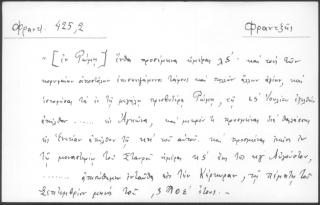 Φραντ. 425,2 Φραντζῆς
"[ἐν Ῥώμῃ] ἔνθα προσέμεινα ἡμέρας λς΄· καὶ τοὺς τῶν
κορυφαίων ἀποστόλων ἐπισκεψάμενος τάφους καὶ πολλῶν ἄλλων ἁγίων, καὶ
τὰ ἐν τῇ μεγάλῃ πρεσβυτέρᾳ Ῥώμῃ, τῇ ις΄ Ἰουλίου ἐξελθὼν
ἀπῆλθον ...... εἰς Ἀγκῶνα, καὶ μικρόν τι προσμείνας διὰ θαλάσσης
εἰς Βενετίαν ἀπῆλθον τῇ τοῦ αὐτοῦ. καὶ προσμείνας ἐκεῖσε ἐν
τῇ μοναστηρίῳ τοῦ Σταυροῦ ἡμέρας κς΄ ἕως τῇ κγ Αὐγούστου,
...... ἐπανήλθομεν ἐνταῦθα εἰς τὴν Κέρκυραν, τῇ πέμπτῃ τοῦ
Σεπτεμβρίου μηνὸς τοῦ ,ςϠοε΄ ἔτους. —